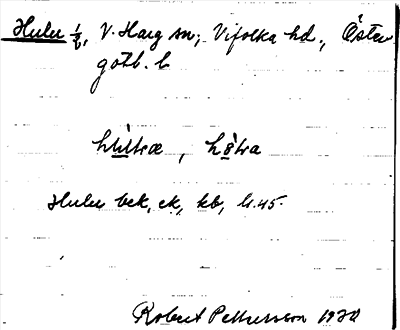 Hulu ½, V. Harg sn; Vifolka hd., Öster
götl. l
Hulu bek, ek, kb, h.45.
Robert Pettersson 1920